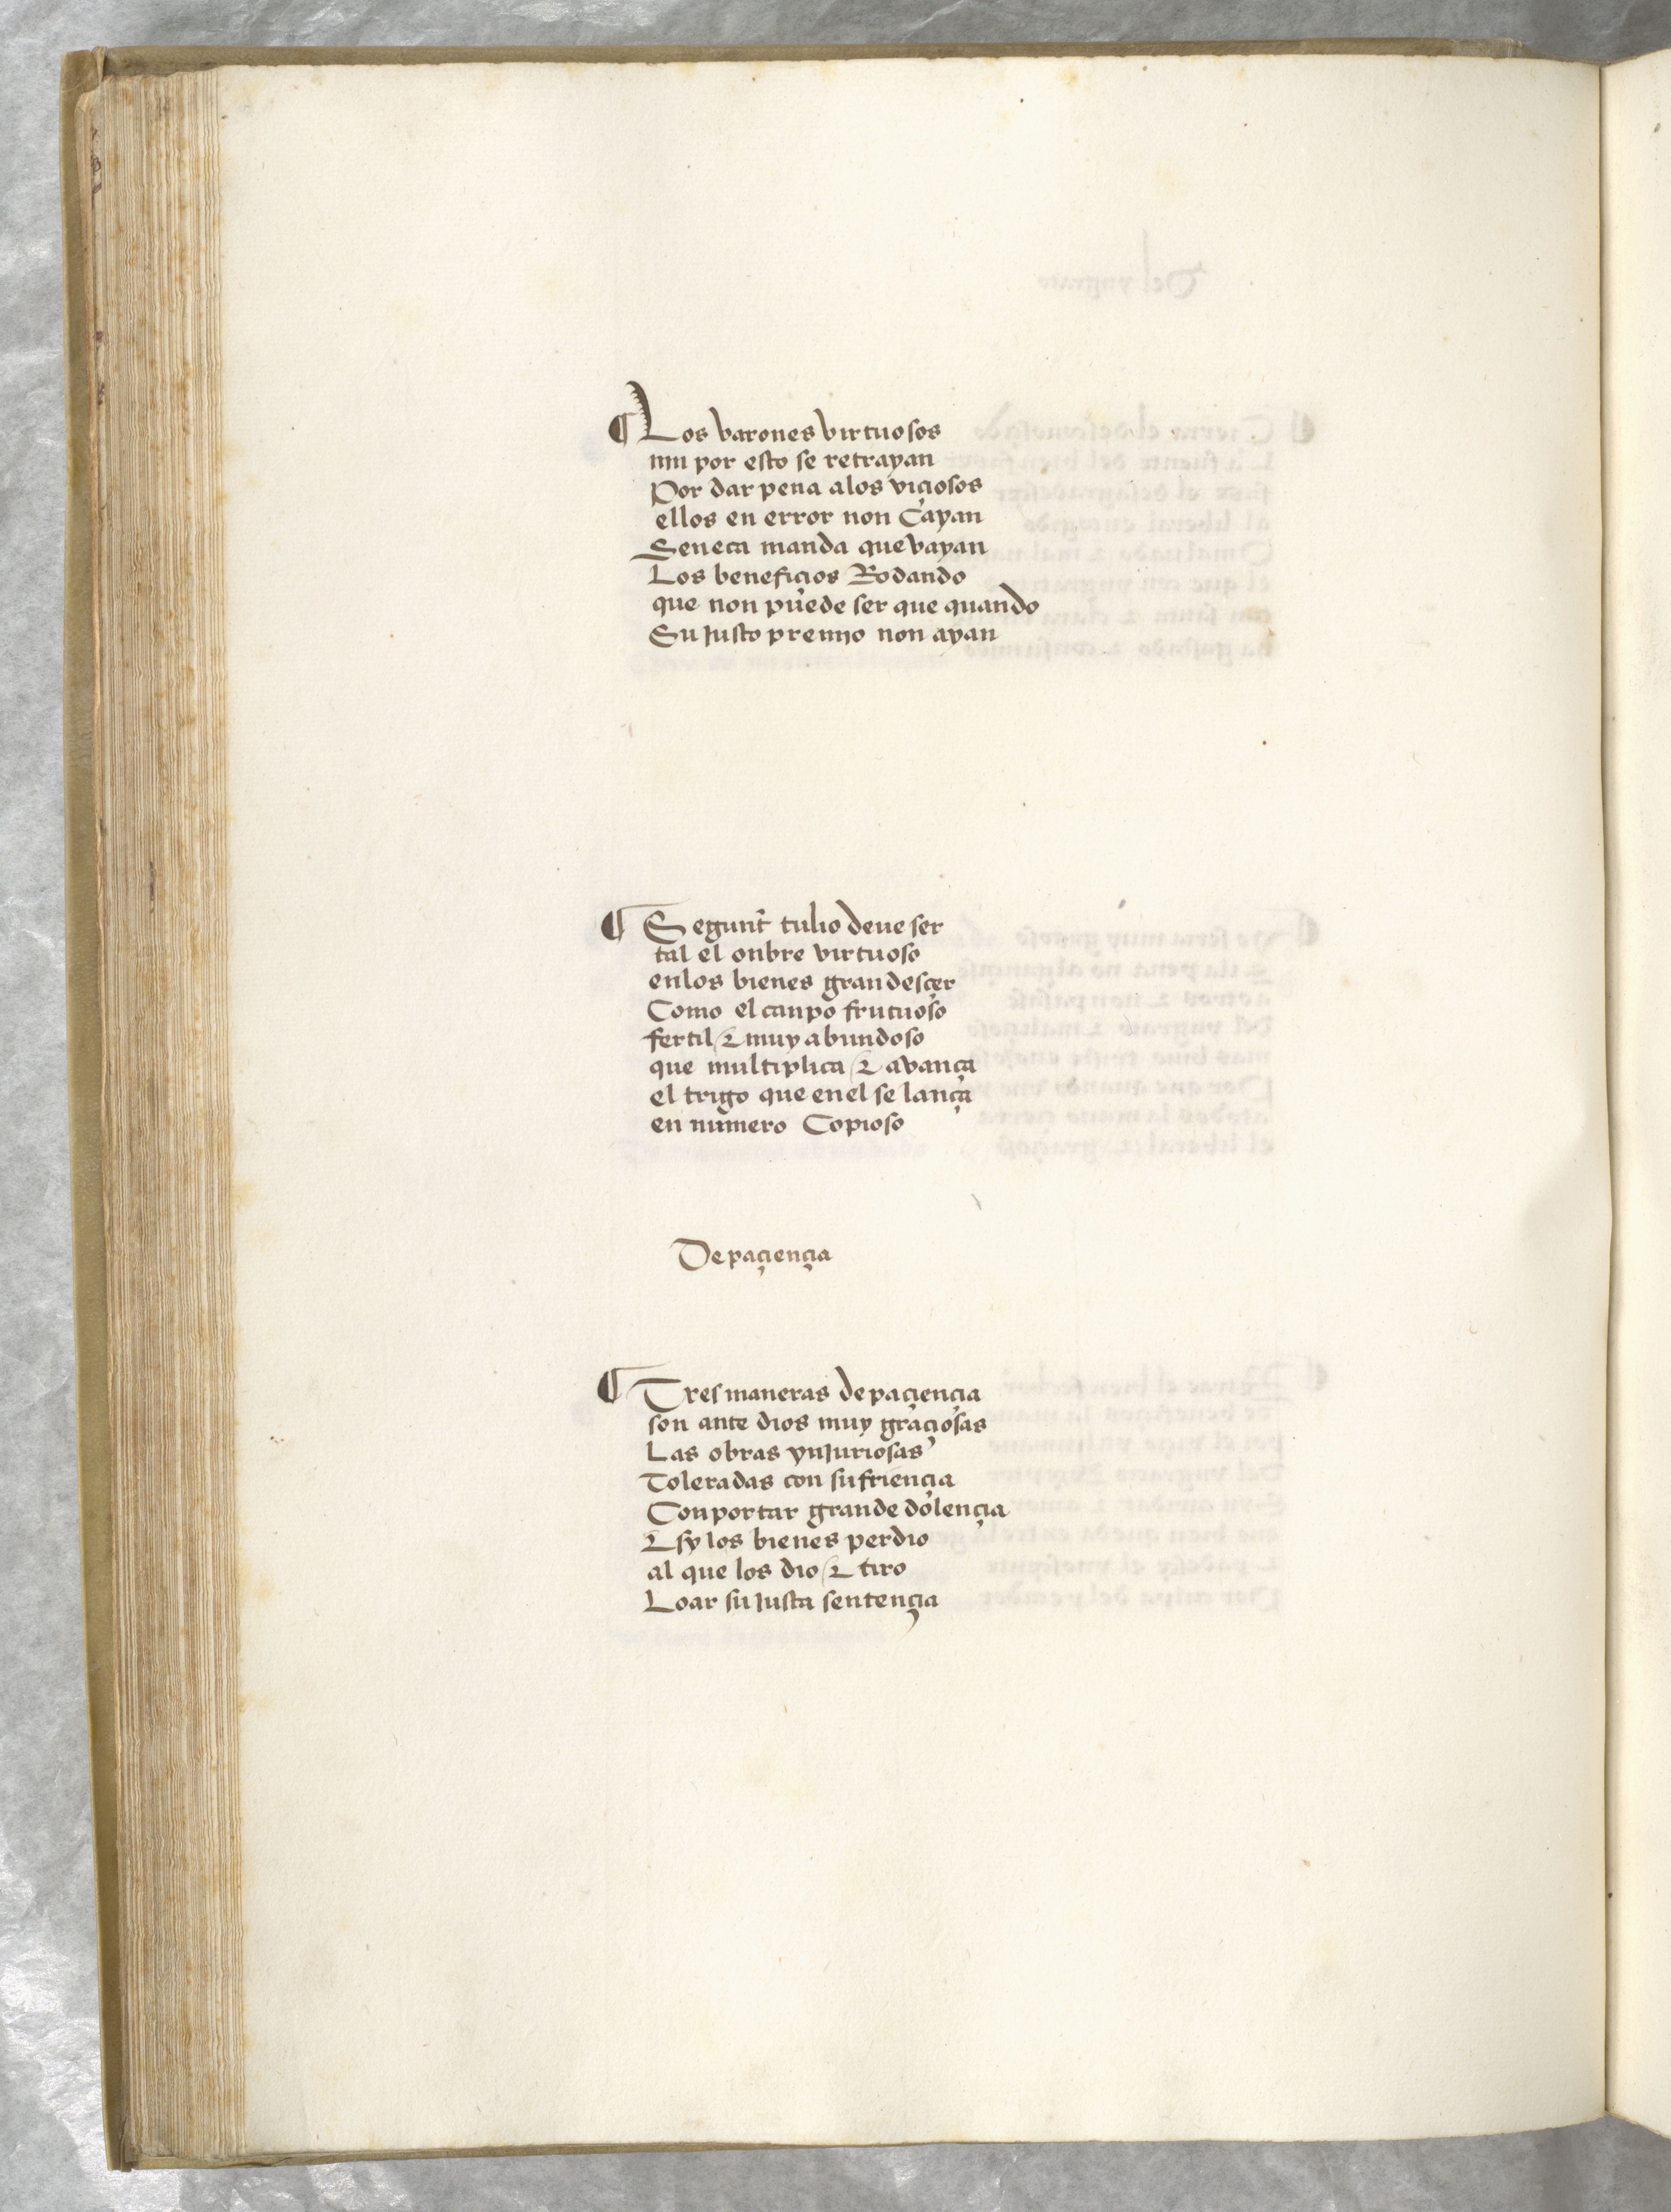 ¶ Los varones virtuosos
nin por esto se retrayan
Por dar pena alos viçiosos
ellos en error non Cayan
Seneca manda que vayan
Los benefiçios Rodando
que non puede ser que quando
Su justo premjo non ayan
¶ Segunt tulio deue ser
tal el onbre virtuoso
enlos bienes grandesçer
Como el canpo frutuoso
fertil & muy abundoso
que multiplica & avança
el trigo que enel se lança
en numero Copioso
De paçiençia
¶ Tres maneras de paçiençia
son ante dios muy graçiosas
Las obras ynjuriosas
Toleradas con sufriençia
Conportar grande dolençia
& sy los bienes perdio
al que los dio & tiro
Loar su justa sentençia